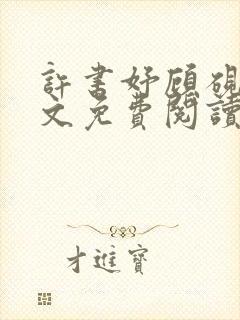 許書妤顧硯
文免費閱讀
才進寶